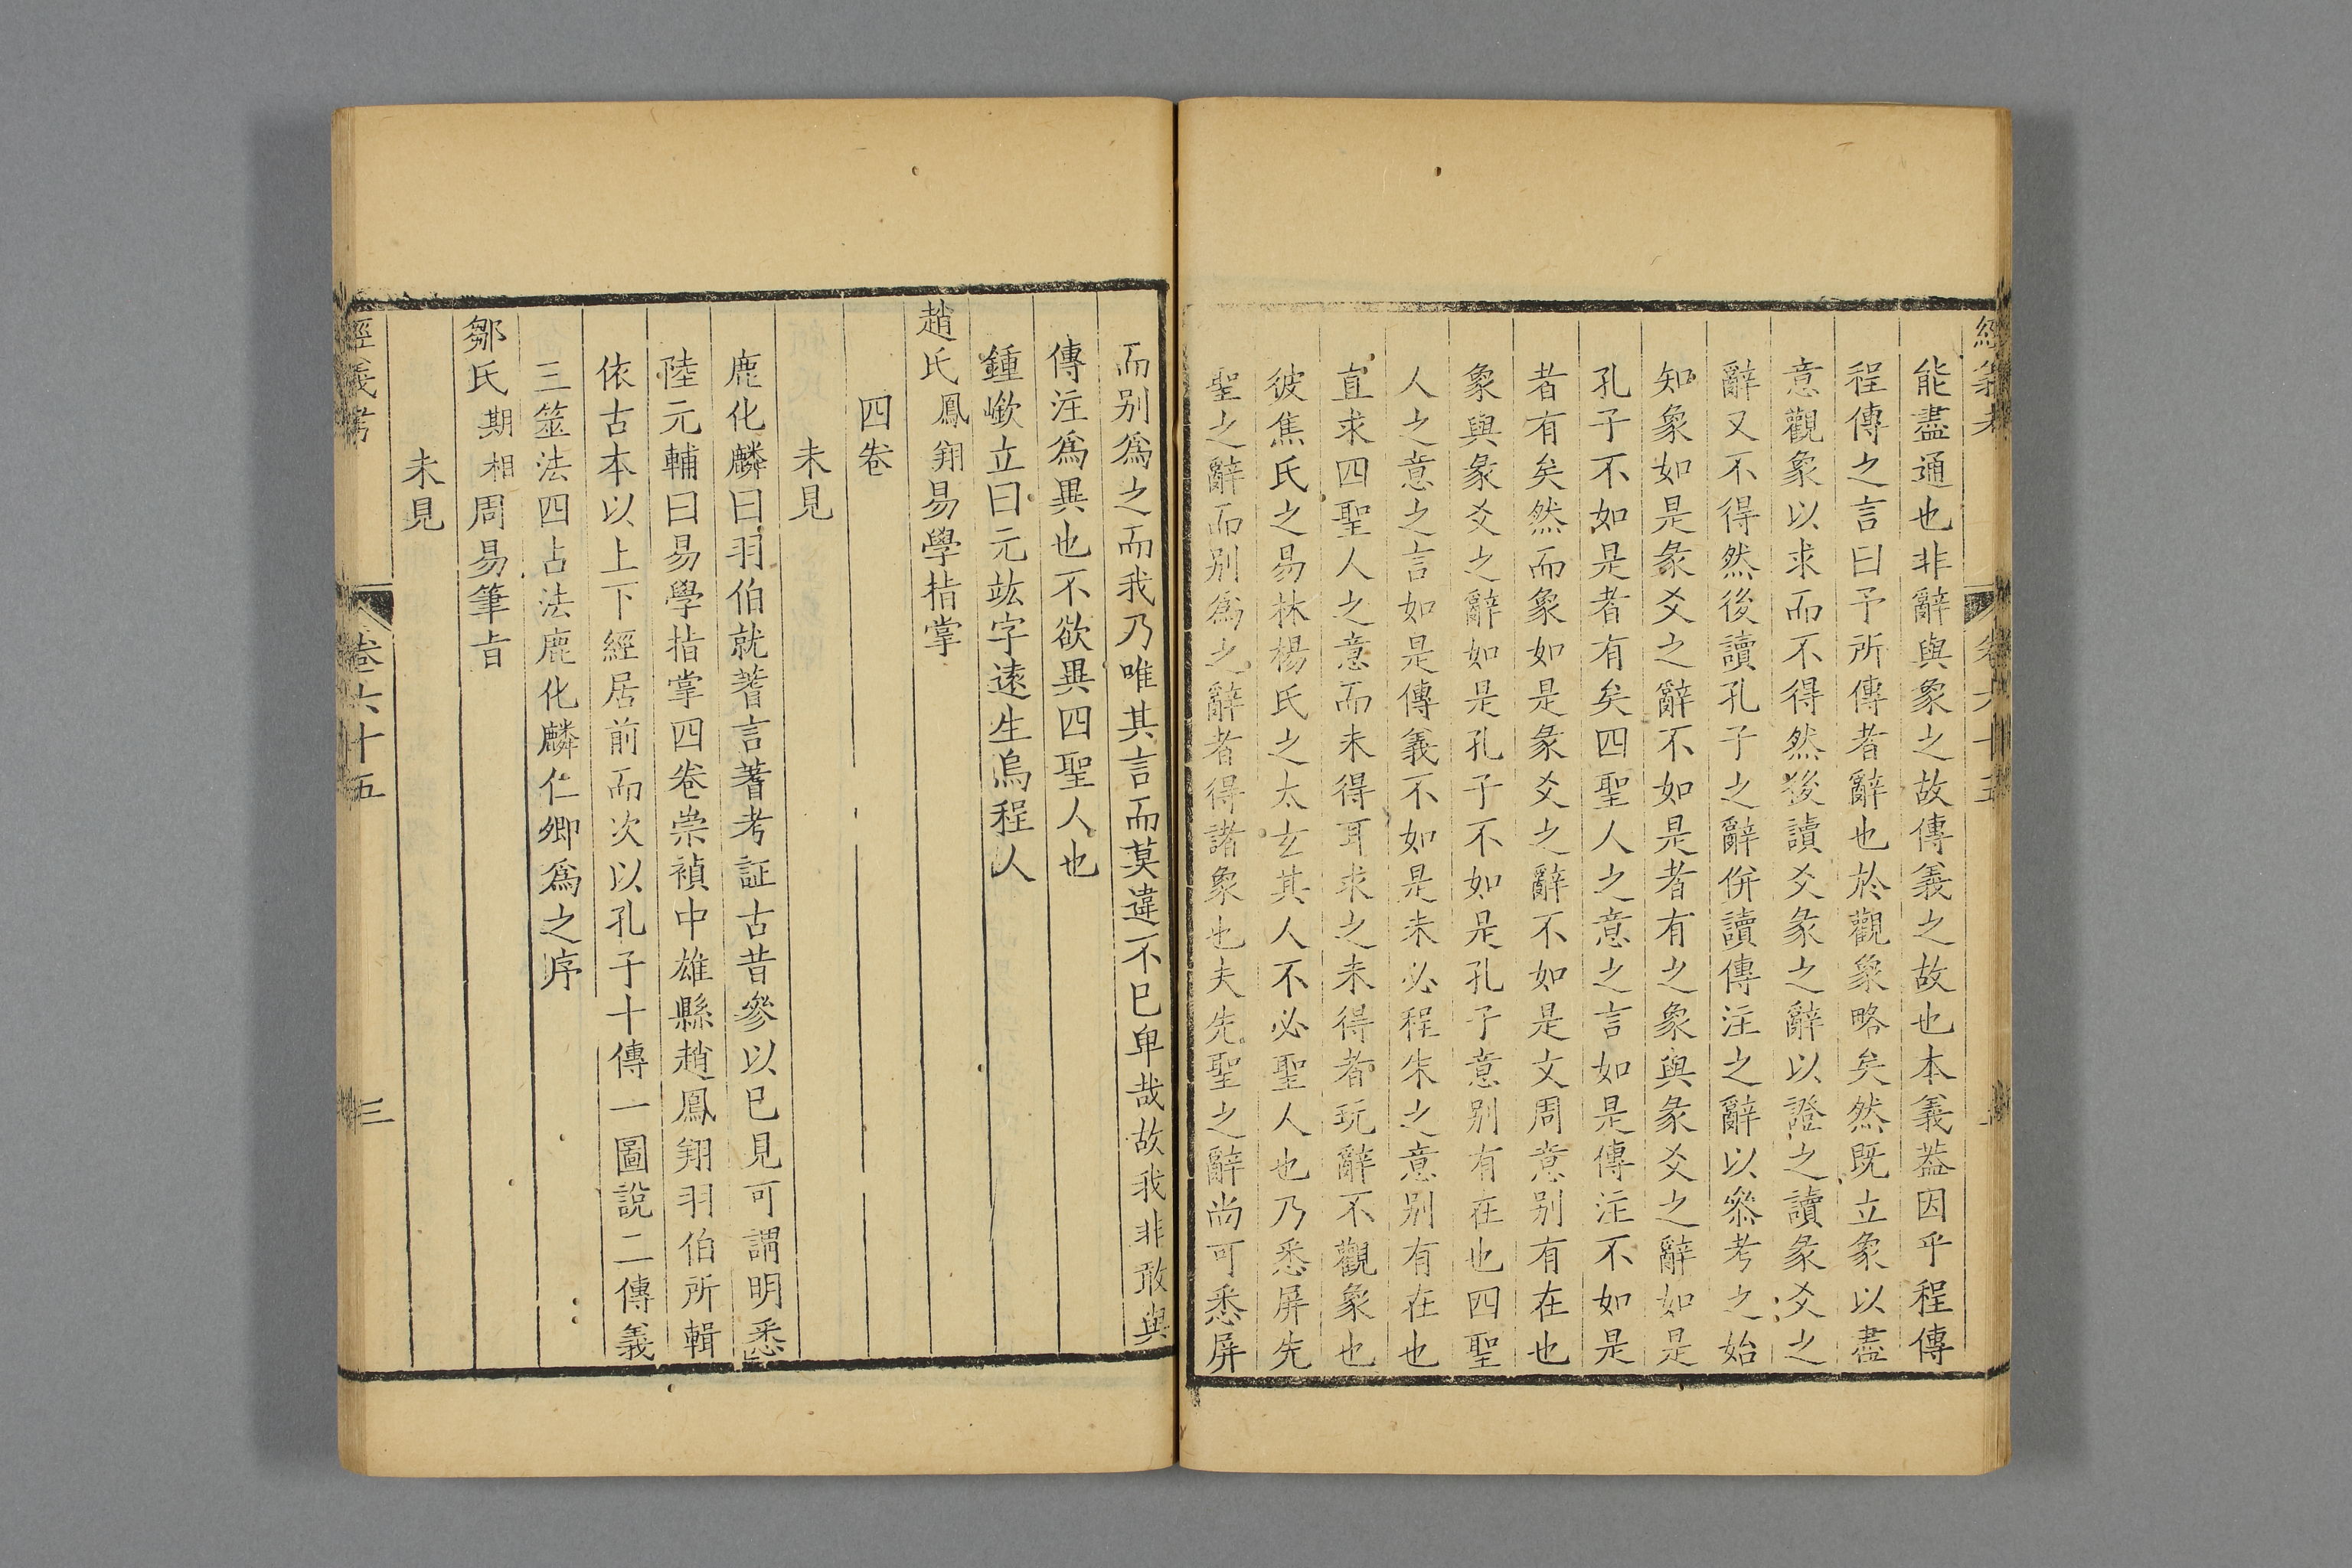 經義考
卷六十五
能盡通也非辭與象之故傳義之故也本義葢因乎程傳
程傳之言曰予所傳者辭也於觀象略矣然既立象以盡
意觀象以求而不得然後讀爻彖之辭以證之讀彖爻之
辭又不得然後讀孔子之辭併讀傳注之辭以叅考之始
知象如是彖爻之辭不如是者有之象與彖爻之辭如是
孔子不如是者有矣四聖人之意之言如是傳注不如是
者有矣然而象如是彖爻之辭不如是文周意别有在也
象與彖爻之辭如是孔子不如是孔子意别有在也四聖
人之意之言如是傳義不如是未必程朱之意别有在也
直求四聖人之意而未得耳求之未得者玩辭不觀象也
彼焦氏之易林楊氏之太玄其人不必聖人也乃悉屏先
聖之辭而别爲之辭者得諸象也夫先聖之辭尚可悉屏
而别爲之而我乃唯其言而莫違不已卑哉故我非敢與
傳注爲異也不欲異四聖人也
鍾嶔立曰元竑字遠生烏程人
趙氏鳳翔易學指掌
四卷
未見
鹿化麟曰羽伯就蓍言蓍考証古昔參以已見可謂明悉
陸元輔曰易學指掌四卷崇禎中雄縣趙鳳翔羽伯所輯
依古本以上下經居前而次以孔子十傳一圖說二傳義
三筮法四占法鹿化麟仁卿爲之序
鄒氏期相周易筆旨
未見
經義考
卷六十五
三